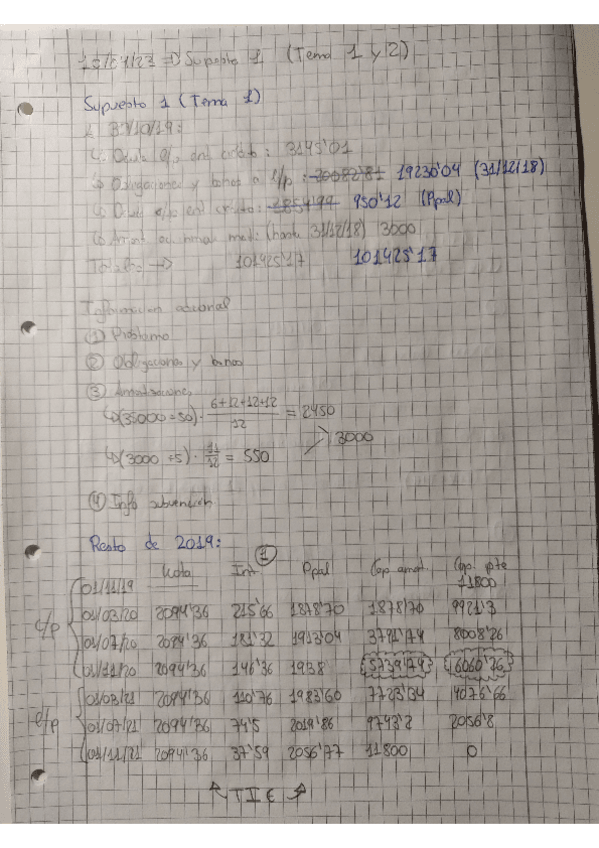 => Supuesto 1 (Tema 1 y 2)
Supuesto 1 (Tema 1)
31/10/19:
ent. crédito: 3145'01
Obligaciones y bonos a l/p: 19230'04 (31/12/18)
950'12 (Ppal)
(hasta 31/12/18) 3000
101425'17 101425'17
Información adicional
① Préstamo
② Obligaciones y bonos
③ Amortizaciones
↳(35000÷50)· 6+12+12+12 / 12 = 2450
3000
↳(3000÷5)· 11/12 = 550
④ Info subvención
Resto de 2019: ①
Kuota Int Ppal Cap. amort. Cap. pte
01/11/19 11800
01/03/20 2094'36 215'66 1878'70 1878'70 9921'3
c/p 01/07/20 2094'36 181'32 1913'04 3791'74 8008'26
01/11/20 2094'36 146'36 1938 5739'74 6060'76
01/03/21 2094'36 110'76 1983'60 7723'34 4076'66
l/p 01/07/21 2094'36 74'5 2019'86 9743'2 2056'8
01/11/21 2094'36 37'59 2056'77 11800 0
TIE